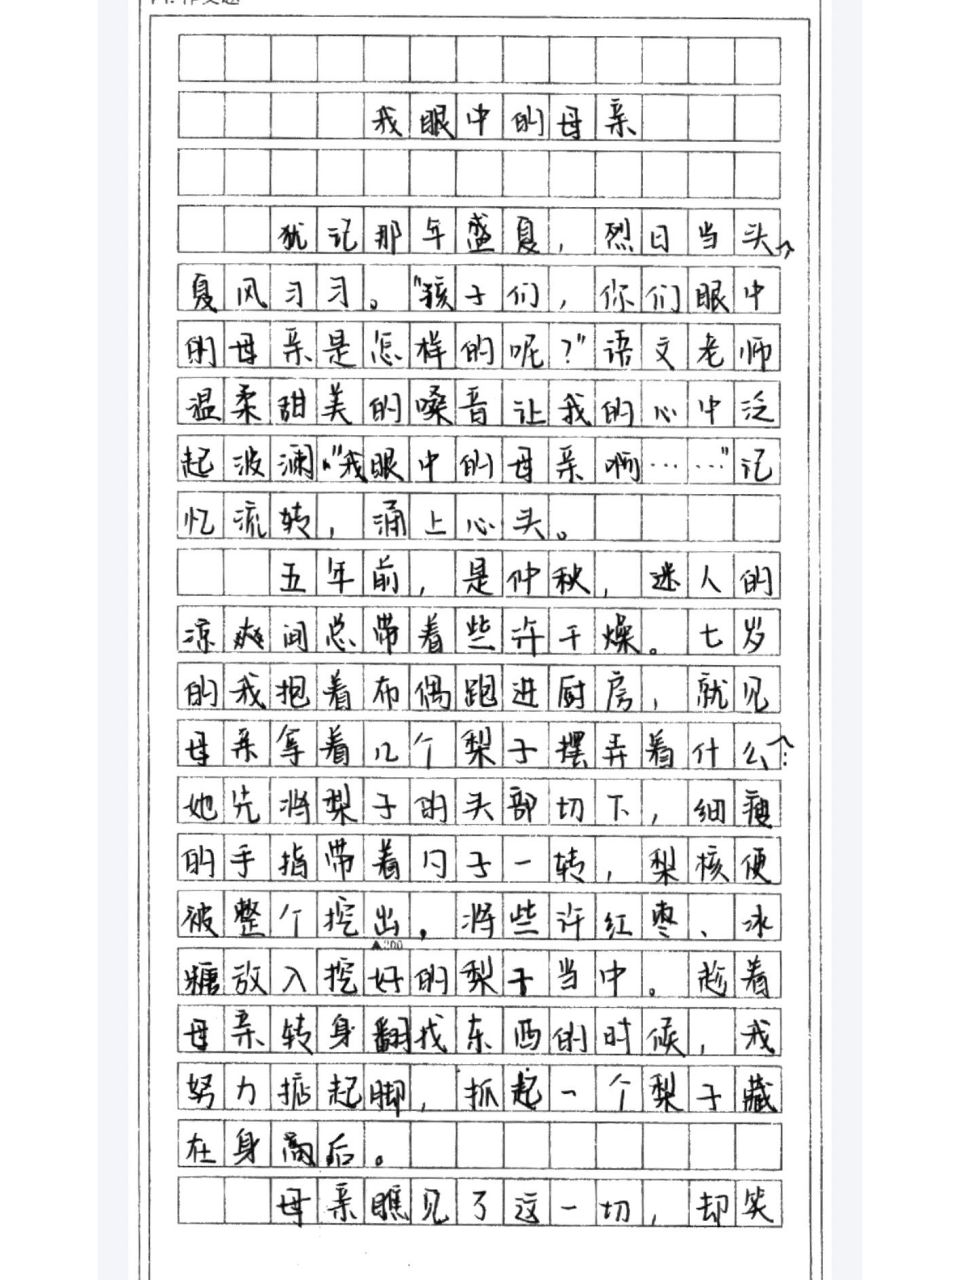 我眼中的母亲
犹记那年盛夏，烈日当头，
夏风习习。“孩子们，你们眼中
的母亲是怎样的呢？”语文老师
温柔甜美的嗓音让我的心中泛
起波澜。“我眼中的母亲啊……”记
忆流转，涌上心头。
五年前，是仲秋，迷人的
凉爽间总带着些许干燥。七岁
的我抱着布偶跑进厨房，就见
母亲拿着几个梨子摆弄着什么：
她先将梨子的头部切下，细瘦
的手指带着勺子一转，梨核便
被整个挖出，将些许红枣、冰
▲200
糖放入挖好的梨子当中。趁着
母亲转身翻找东西的时候，我
努力掂起脚，抓起一个梨子藏
在身后。
母亲瞧见了这一切，却笑